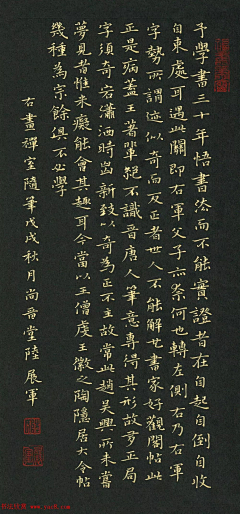 予學書三十年悟書法而不能實證者在自起自倒自收
自束處耳過此關即右軍父子亦奈何也轉左側右乃右軍
字勢所謂迹似奇而反正者世人不能解也書家好觀閣帖此
正是病蓋王著輩絕不識晉唐人筆意專得其形故多正局
字須奇宕瀟洒時出新致以奇為正不主故常此趙吳興所未嘗
夢見者惟米癡能會其趣耳今當以王僧虔王徽之陶隱居大令帖
幾種為宗餘俱不必學
右畫禪室隨筆戊戌秋月尚音堂陸展軍